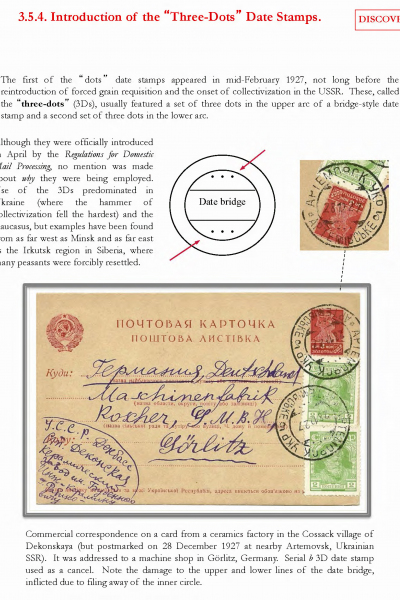 3.5.4. Introduction of the “Three-Dots” Date Stamps.
DISCOVE
The first of the “dots” date stamps appeared in mid-February 1927, not long before the
reintroduction of forced grain requisition and the onset of collectivization in the USSR. These, called
the “three-dots” (3Ds), usually featured a set of three dots in the upper arc of a bridge-style date
stamp and a second set of three dots in the lower arc.
lthough they were officially introduced
n April by the Regulations for Domestic
Mail Processing, no mention was made
bout why they were being employed.
se of the 3Ds predominated in
kraine (where the hammer of
ollectivization fell the hardest) and the
aucasus, but examples have been found
rom as far west as Minsk and as far east
s the Irkutsk region in Siberia, where
any peasants were forcibly resettled.
Date bridge
ПОЧТОВАЯ КАРТОЧКА
ПОШТОВА ЛИСТІВКА
Куда: Германия, Deutschland
Maschinenfabrik
Roscher, G.M.B.H
Görlitz
У.С.С.Р. Донбасс
Деконская
Керамический
Commercial correspondence on a card from a ceramics factory in the Cossack village of
Dekonskaya (but postmarked on 28 December 1927 at nearby Artemovsk, Ukrainian
SSR). It was addressed to a machine shop in Görlitz, Germany. Serial b 3D date stamp
used as a cancel. Note the damage to the upper and lower lines of the date bridge,
inflicted due to filing away of the inner circle.